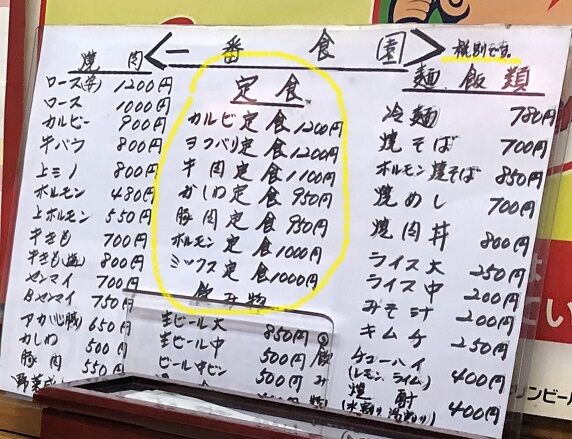 一番食園
税別です。
焼肉
ロース(辛) 1200円
ロース 1000円
カルビー 900円
牛バラ 800円
上ミノ 800円
ホルモン 480円
上ホルモン 550円
牛きも 700円
牛きも(塩) 800円
センマイ 700円
Bセンマイ 750円
アカ(心臓) 650円
かしわ 500円
豚肉 550円
野菜
定食
カルビ定食 1200円
ヨコバリ定食 1200円
牛肉定食 1100円
かしわ定食 950円
豚肉定食 950円
ホルモン定食 1000円
ミックス定食 1000円
飲み物
生ビール大 850円
生ビール中 500円
ビール中ビン 500円
麺飯類
冷麺 780円
焼そば 700円
ホルモン焼そば 850円
焼めし 700円
焼肉丼 800円
ライス大 250円
ライス中 200円
みそ汁 200円
キムチ 250円
チューハイ 400円
(レモン、ライム)
焼酎 400円
(水割り 湯割り)
飲み物
は
い
リンビール